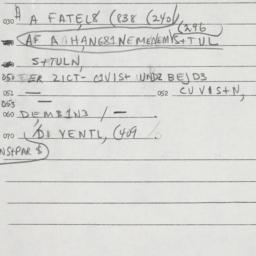 030 A FATEL8 (838 (240)
(246
AF A HANG81NEMENEM S+TUL
S+TULN,
050 TER 2ICT- C1VIS+ UND2 BEJD3
051 — 052 CUVIS+N,
053
060 DEMB1N3 / —
070 DI VENTL, (409
NS+PAR $